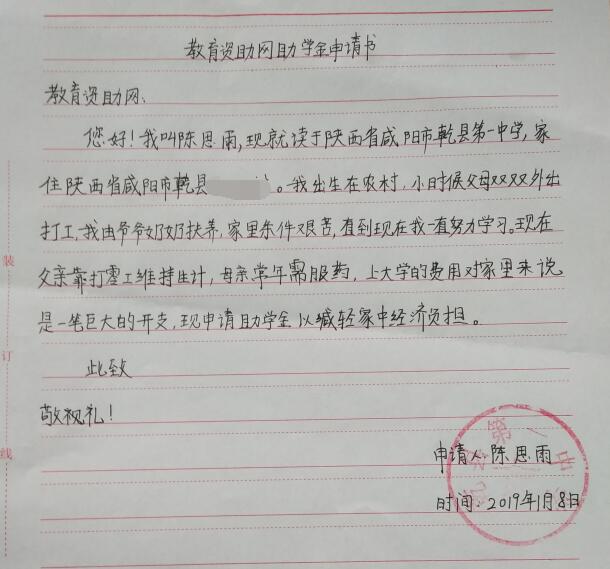 教育资助网助学金申请书
教育资助网:
您好!我叫陈思雨,现就读于陕西省咸阳市乾县第一中学,家
住陕西省咸阳市乾县 。我出生在农村,小时候父母双双外出
打工,我由爷爷奶奶扶养,家里条件艰苦,直到现在我一直努力学习。现在
父亲靠打零工维持生计,母亲常年需服药,上大学的费用对家里来说
是一笔巨大的开支,现申请助学金以缄轻家中经济负担。
此致
敬祝礼!
申请人:陈思雨
时间:2019年1月8日
装
订
线
第一中